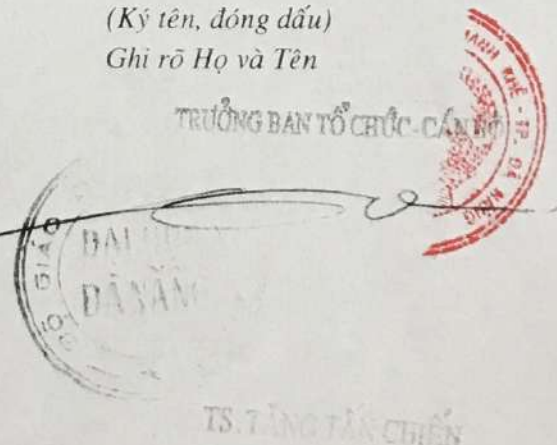 (Ký tên, đóng dấu)
Ghi rõ Họ và Tên
TRƯỞNG BAN TỔ CHỨC - CÁN BỘ
THANH KHÊ - TP. ĐÀ NẴNG
BỘ GIÁO
ĐẠI
ĐÀ NẴNG
TS. TĂNG TẤN CHIẾN